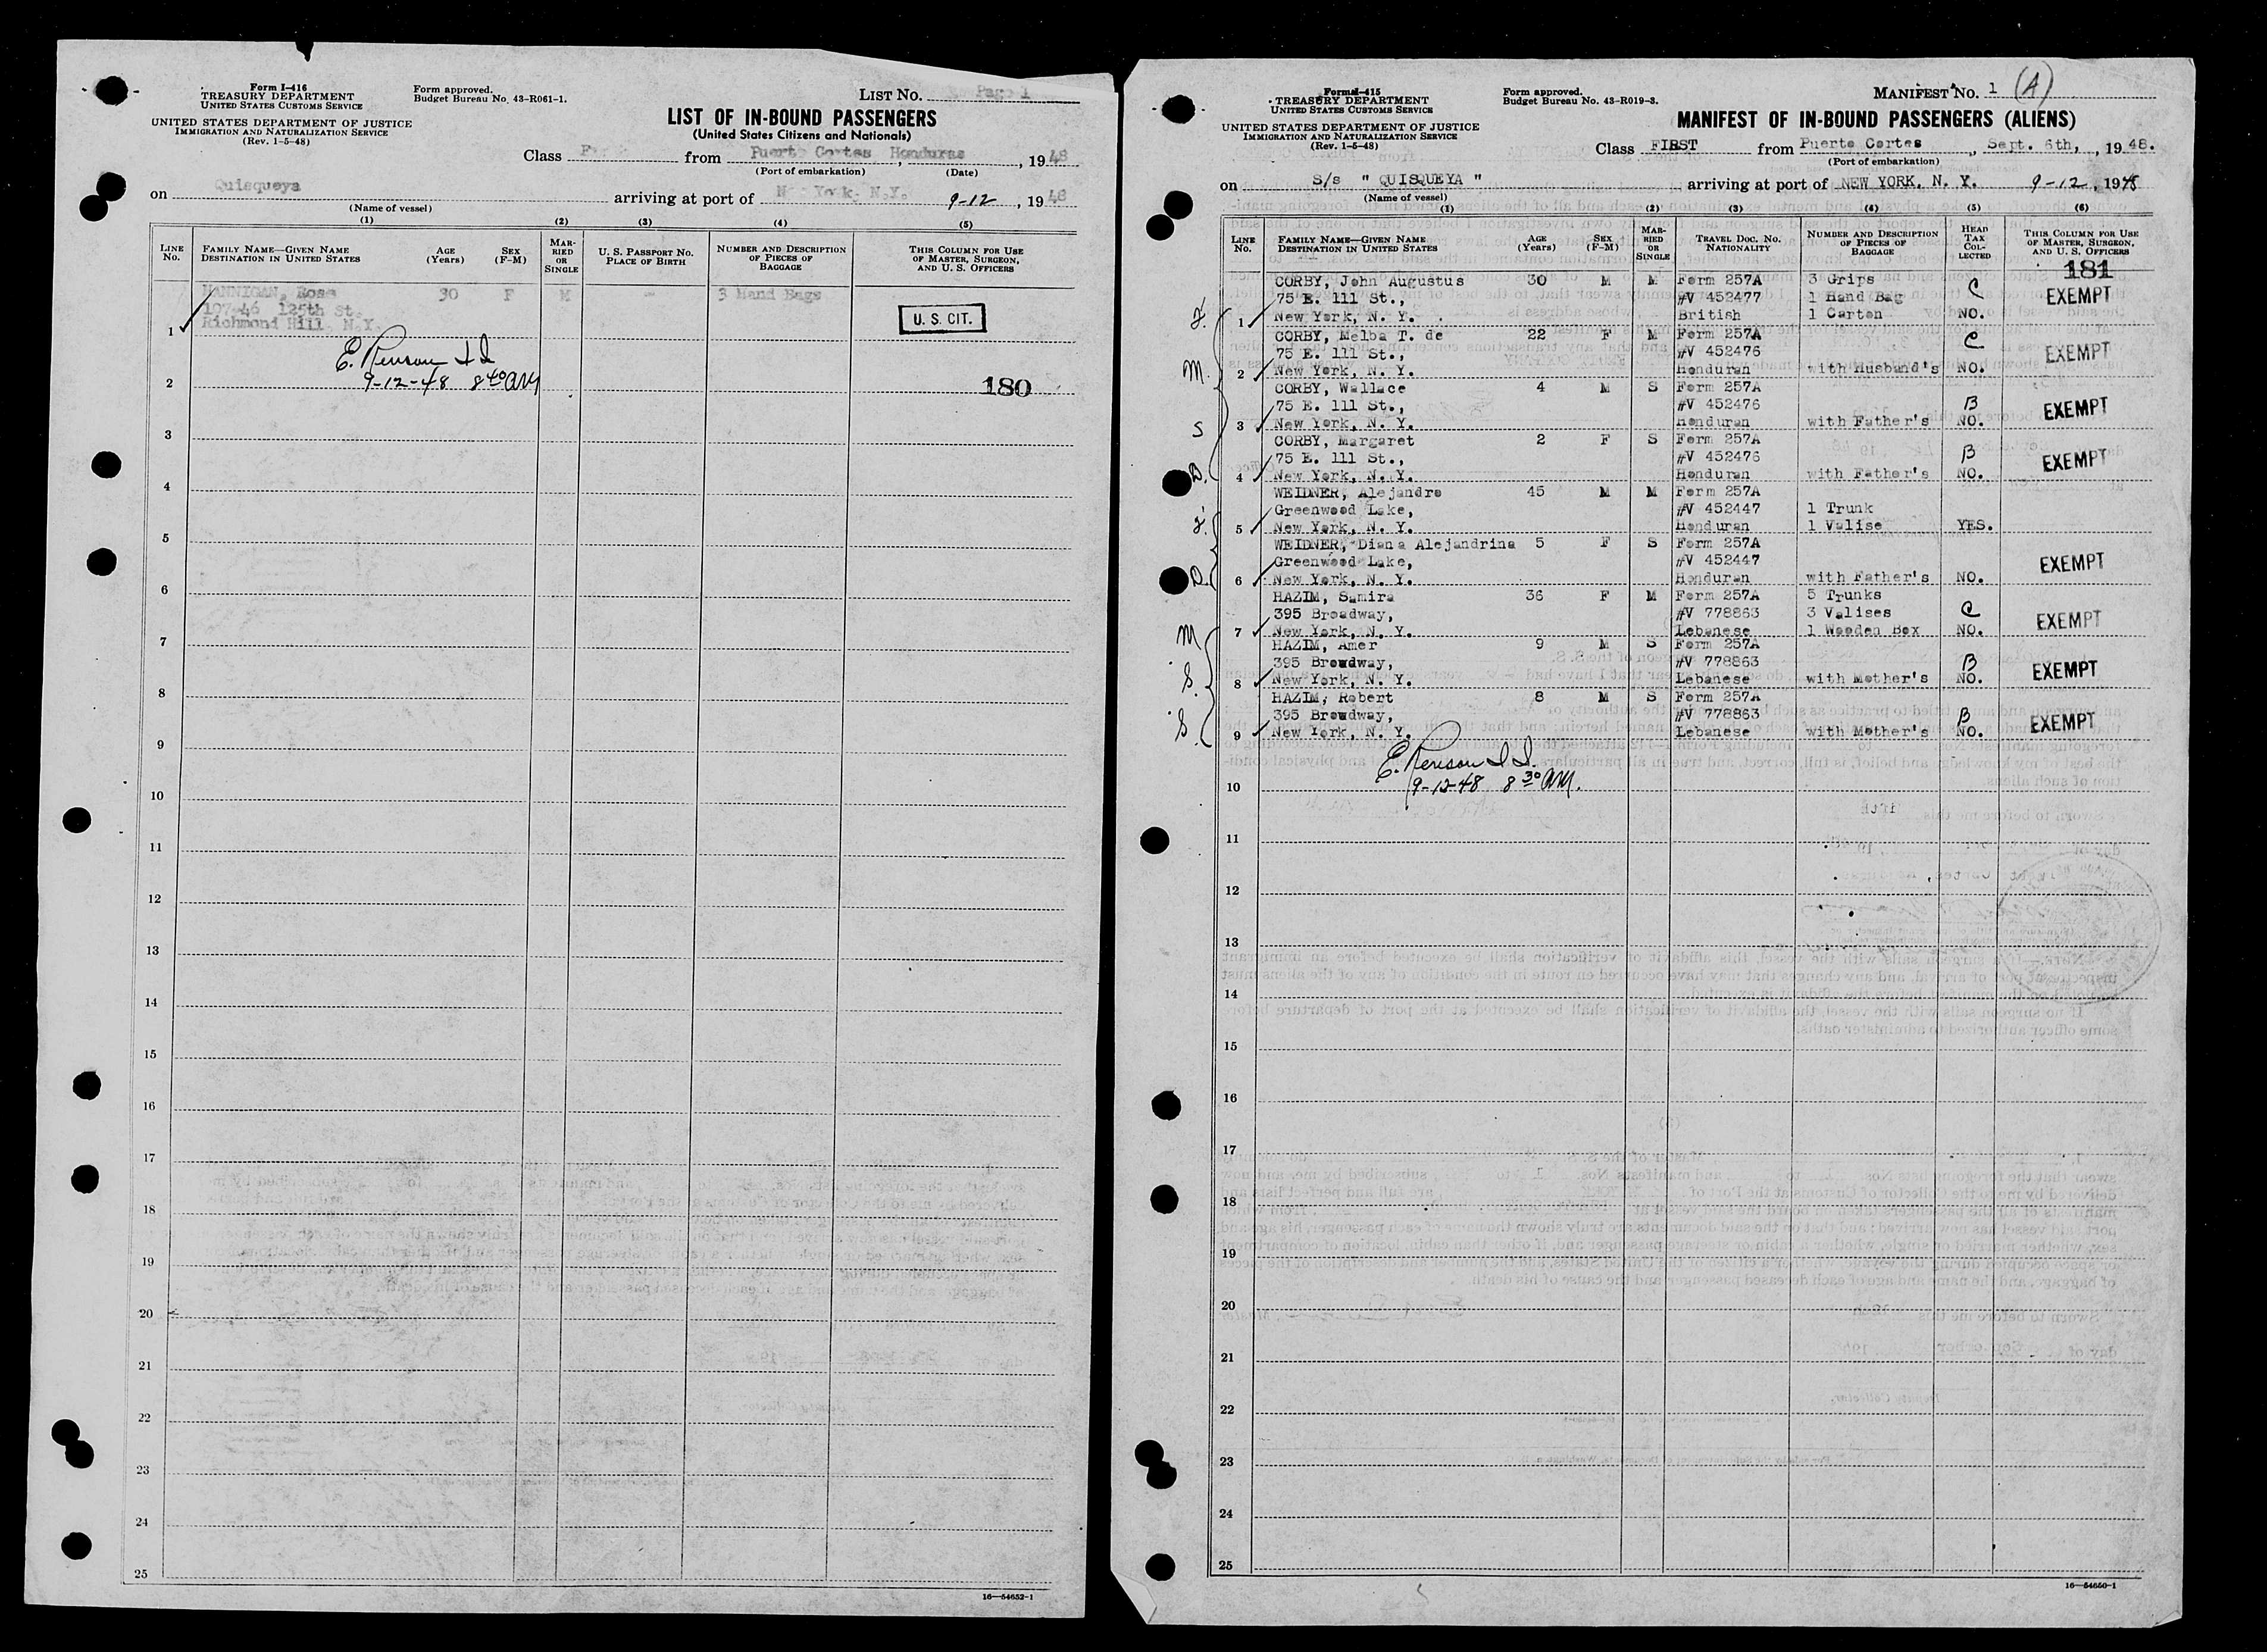 Form I-416
TREASURY DEPARTMENT
UNITED STATES CUSTOMS SERVICE
UNITED STATES DEPARTMENT OF JUSTICE
IMMIGRATION AND NATURALIZATION SERVICE
(Rev. 1-5-48)
Form approved.
Budget Bureau No. 43-R061-1.
LIST No. Page 1
LIST OF IN-BOUND PASSENGERS
(United States Citizens and Nationals)
Class from Puerto Cortes Honduras, , 1948
(Port of embarkation) (Date)
on Quisqueya arriving at port of New York, N.Y. 9-12, 1948
(Name of vessel)
(1) (2) (3) (4) (5)
LINE No. FAMILY NAME—GIVEN NAME DESTINATION IN UNITED STATES AGE (Years) SEX (F-M) MARRIED OR SINGLE U. S. PASSPORT No. PLACE OF BIRTH NUMBER AND DESCRIPTION OF PIECES OF BAGGAGE THIS COLUMN FOR USE OF MASTER, SURGEON, AND U. S. OFFICERS
HANNIGAN, Rose 30 F M - 3 Hand Bags
107-46 125th St.
1 Richmond Hill, N.Y. U. S. CIT.
E. Renison I I
2 9-12-48 8 40 AM 180
3
4
5
6
7
8
9
10
11
12
13
14
15
16
17
18
19
20
21
22
23
24
25
16—54652-1
Form I-415
TREASURY DEPARTMENT
UNITED STATES CUSTOMS SERVICE
UNITED STATES DEPARTMENT OF JUSTICE
IMMIGRATION AND NATURALIZATION SERVICE
(Rev. 1-5-48)
Form approved.
Budget Bureau No. 43-R019-3.
MANIFEST No. 1 (A)
MANIFEST OF IN-BOUND PASSENGERS (ALIENS)
Class FIRST from Puerto Cortes, Sept. 6th, , 1948.
(Port of embarkation)
on S/s " QUISQUEYA " arriving at port of NEW YORK, N. Y. 9-12, 1948
(Name of vessel)
(1) (2) (3) (4) (5) (6)
LINE No. FAMILY NAME—GIVEN NAME DESTINATION IN UNITED STATES AGE (Years) SEX (F-M) MARRIED OR SINGLE TRAVEL DOC. No. NATIONALITY NUMBER AND DESCRIPTION OF PIECES OF BAGGAGE HEAD TAX COLLECTED THIS COLUMN FOR USE OF MASTER, SURGEON, AND U. S. OFFICERS
181
CORBY, John Augustus 30 M M Form 257A 3 Grips C
75 E. 111 St., #V 452477 1 Hand Bag EXEMPT
1 New York, N. Y. British 1 Carton NO.
CORBY, Melba T. de 22 F M Form 257A C
M. 75 E. 111 St., #V 452476 EXEMPT
2 New York, N. Y. Honduran with Husband's NO.
CORBY, Wallace 4 M S Form 257A
75 E. 111 St., #V 452476 B EXEMPT
S 3 New York, N. Y. Honduran with Father's NO.
CORBY, Margaret 2 F S Form 257A
75 E. 111 St., #V 452476 B EXEMPT
D. 4 New York, N. Y. Honduran with Father's NO.
WEIDNER, Alejandro 45 M M Form 257A
Greenwood Lake, #V 452447 1 Trunk
5 New York, N. Y. Honduran 1 Valise YES.
WEIDNER, Diana Alejandrina 5 F S Form 257A
Greenwood Lake, #V 452447 EXEMPT
D. 6 New York, N. Y. Honduran with Father's NO.
HAZIM, Samira 36 F M Form 257A 5 Trunks
395 Broadway, #V 778863 3 Valises C EXEMPT
M 7 New York, N. Y. Lebanese 1 Wooden Box NO.
HAZIM, Amer 9 M S Form 257A
395 Broadway, #V 778863 B EXEMPT
S. 8 New York, N. Y. Lebanese with Mother's NO.
HAZIM, Robert 8 M S Form 257A
395 Broadway, #V 778863 B EXEMPT
S. 9 New York, N. Y. Lebanese with Mother's NO.
E. Renison I I.
10 9-12-48 8 30 AM.
11
12
13
14
15
16
17
18
19
20
21
22
23
24
25
16—54650-1